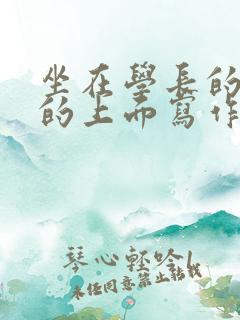 坐在學長的
的上面寫作
琴心輕吟
未經同意禁止轉載